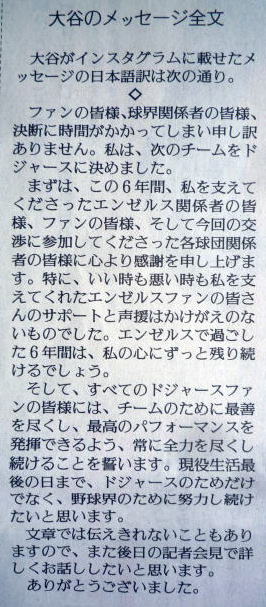 大谷のメッセージ全文
大谷がインスタグラムに載せたメ
ッセージの日本語訳は次の通り。
◇
ファンの皆様、球界関係者の皆様、
決断に時間がかかってしまい申し訳
ありません。私は、次のチームをド
ジャースに決めました。
まずは、この6年間、私を支えて
くださったエンゼルス関係者の皆
様、ファンの皆様、そして今回の交
渉に参加してくださった各球団関係
者の皆様に心より感謝を申し上げま
す。特に、いい時も悪い時も私を支
えてくれたエンゼルスファンの皆さ
んのサポートと声援はかけがえのな
いものでした。エンゼルスで過ごし
た6年間は、私の心にずっと残り続
けるでしょう。
そして、すべてのドジャースファ
ンの皆様には、チームのために最善
を尽くし、最高のパフォーマンスを
発揮できるよう、常に全力を尽くし
続けることを誓います。現役生活最
後の日まで、ドジャースのためだけ
でなく、野球界のために努力し続け
たいと思います。
文章では伝えきれないこともあり
ますので、また後日の記者会見で詳
しくお話ししたいと思います。
ありがとうございました。